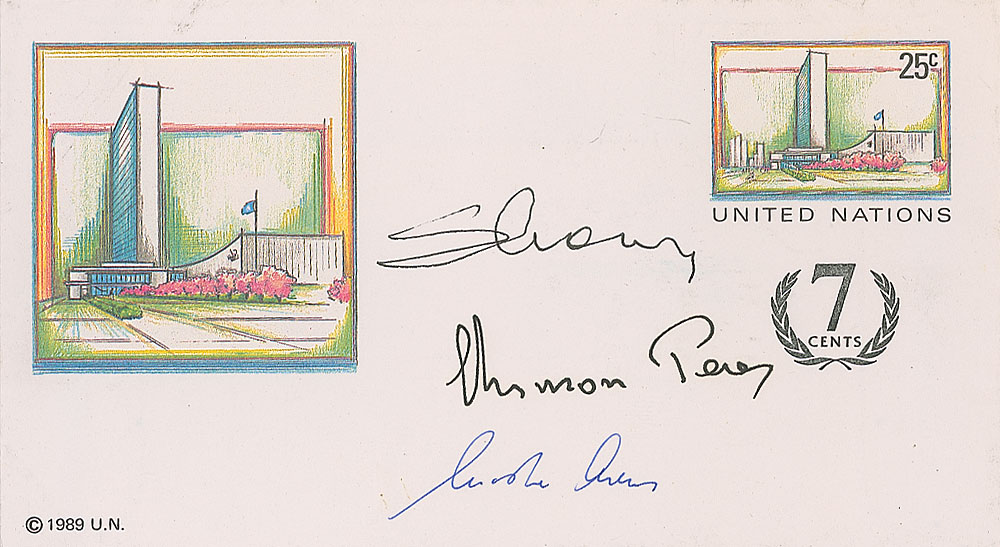 25c
UNITED NATIONS
7
CENTS
Shimon Peres
Moshe Arens
© 1989 U.N.